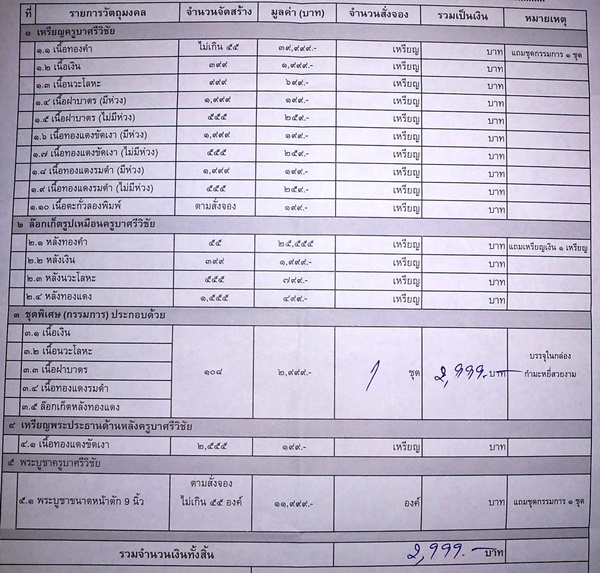 ที่ รายการวัตถุมงคล จำนวนจัดสร้าง มูลค่า (บาท) จำนวนสั่งจอง รวมเป็นเงิน หมายเหตุ
๑ เหรียญครูบาศรีวิชัย
๑.๑ เนื้อทองคำ ไม่เกิน ๕๕ ๓๙,๙๙๙.- เหรียญ บาท แถมชุดกรรมการ ๑ ชุด
๑.๒ เนื้อเงิน ๓๙๙ ๑,๙๙๙.- เหรียญ บาท
๑.๓ เนื้อนวะโลหะ ๙๙๙ ๖๙๙.- เหรียญ บาท
๑.๔ เนื้อฝาบาตร (มีห่วง) ๑,๙๙๙ ๑๙๙.- เหรียญ บาท
๑.๕ เนื้อฝาบาตร (ไม่มีห่วง) ๕๕๕ ๒๕๙.- เหรียญ บาท
๑.๖ เนื้อทองแดงขัดเงา (มีห่วง) ๑,๙๙๙ ๑๙๙.- เหรียญ บาท
๑.๗ เนื้อทองแดงขัดเงา (ไม่มีห่วง) ๕๕๕ ๒๕๙.- เหรียญ บาท
๑.๘ เนื้อทองแดงรมดำ (มีห่วง) ๑,๙๙๙ ๑๙๙.- เหรียญ บาท
๑.๙ เนื้อทองแดงรมดำ (ไม่มีห่วง) ๕๕๕ ๒๕๙.- เหรียญ บาท
๑.๑๐ เนื้อตะกั่วลองพิมพ์ ตามสั่งจอง ๑๙๙.- เหรียญ บาท
๒ ล๊อกเก็ตรูปเหมือนครูบาศรีวิชัย
๒.๑ หลังทองคำ ๕๕ ๒๕,๕๕๕.- เหรียญ บาท แถมเหรียญเงิน ๑ เหรียญ
๒.๒ หลังเงิน ๓๙๙ ๑,๙๙๙.- เหรียญ บาท
๒.๓ หลังนวะโลหะ ๕๕๕ ๗๙๙.- เหรียญ บาท
๒.๔ หลังทองแดง ๑,๕๕๕ ๔๙๙.- เหรียญ บาท
๓ ชุดพิเศษ (กรรมการ) ประกอบด้วย
๓.๑ เนื้อเงิน
๓.๒ เนื้อนวะโลหะ
๓.๓ เนื้อฝาบาตร ๑๐๘ ๒,๙๙๙.- 1 ชุด 2,999.- บาท บรรจุในกล่อง
กำมะหยี่สวยงาม
๓.๔ เนื้อทองแดงรมดำ
๓.๕ ล๊อกเก็ตหลังทองแดง
๔ เหรียญพระประธานด้านหลังครูบาศรีวิชัย
๔.๑ เนื้อทองแดงขัดเงา ๒,๕๕๕ ๑๙๙.- เหรียญ บาท
๕ พระบูชาครูบาศรีวิชัย
๕.๑ พระบูชาขนาดหน้าตัก 9 นิ้ว ตามสั่งจอง
ไม่เกิน ๕๕ องค์ ๑๑,๙๙๙.- องค์ บาท แถมชุดกรรมการ ๑ ชุด
รวมจำนวนเงินทั้งสิ้น 2,999.- บาท